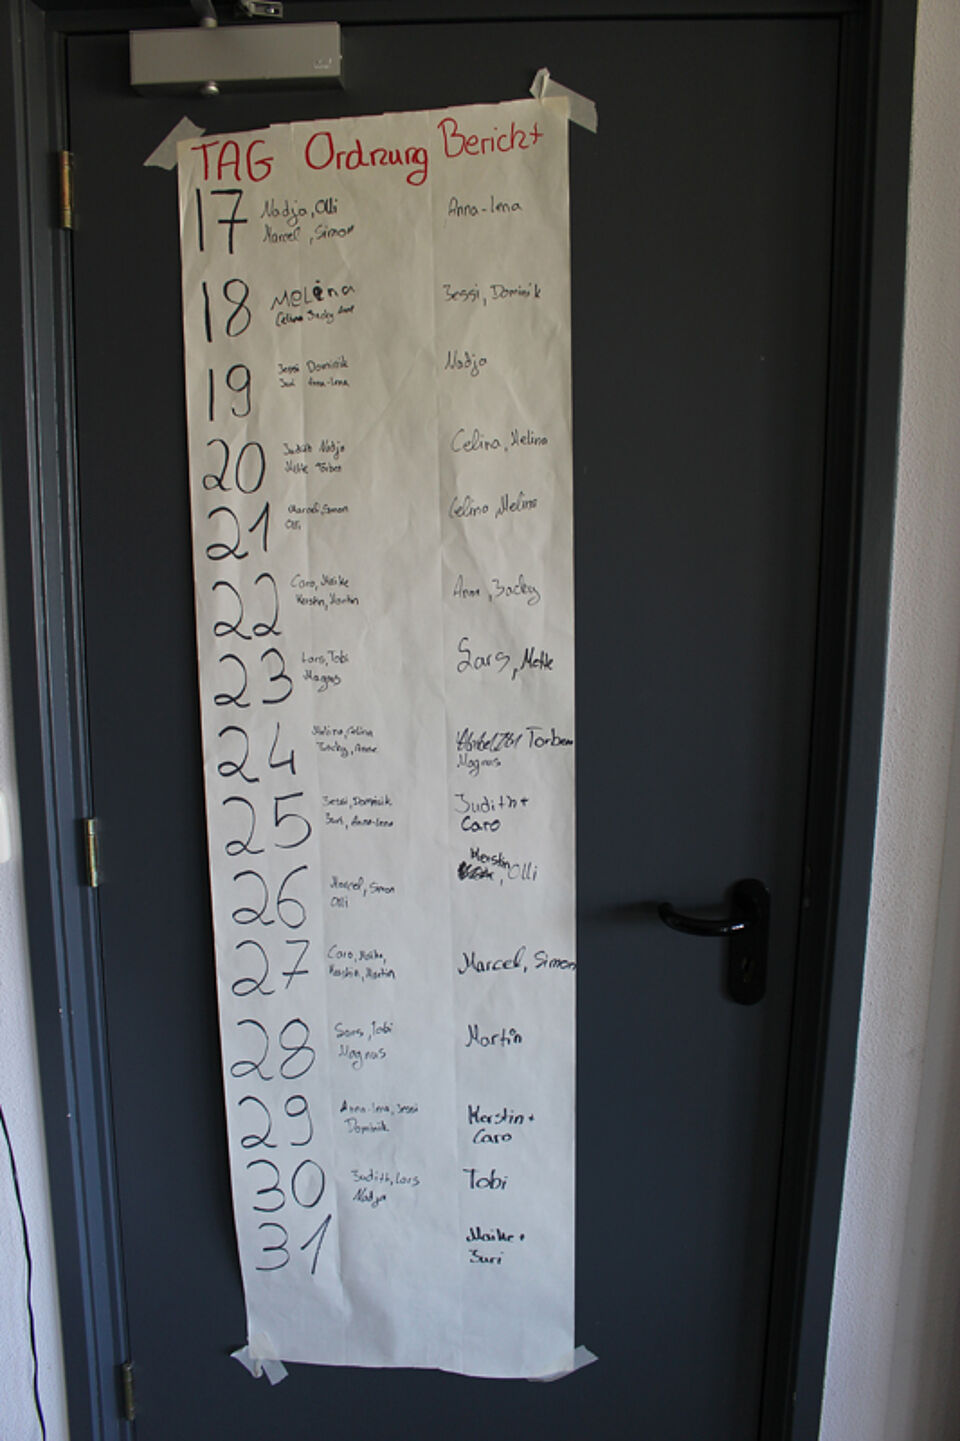 TAG Ordnung Bericht
17 Nadja, Olli Anna-Lena
Marcel, Simon
18 Melina Jessi, Dominik
Celina Jacky Anne
19 Jessi Dominik Nadja
Juri Anna-Lena
20 Judith Nadja Celina, Melina
Mette Torben
21 Marcel, Simon Celina, Melina
Olli
22 Caro, Maike Anne, Jacky
Kerstin, Martin
23 Lars, Tobi Lars, Mette
Magnus
24 Melina, Celina Torben
Jacky, Anne Magnus
25 Jessi, Dominik Judith +
Juri, Anna-Lena Caro
Kerstin
26 Marcel, Simon , Olli
Olli
27 Caro, Maike, Marcel, Simon
Kerstin, Martin
28 Lars, Tobi Martin
Magnus
29 Anna-Lena, Jessi Kerstin +
Dominik Caro
30 Judith, Lars Tobi
Nadja
31 Maike +
Juri